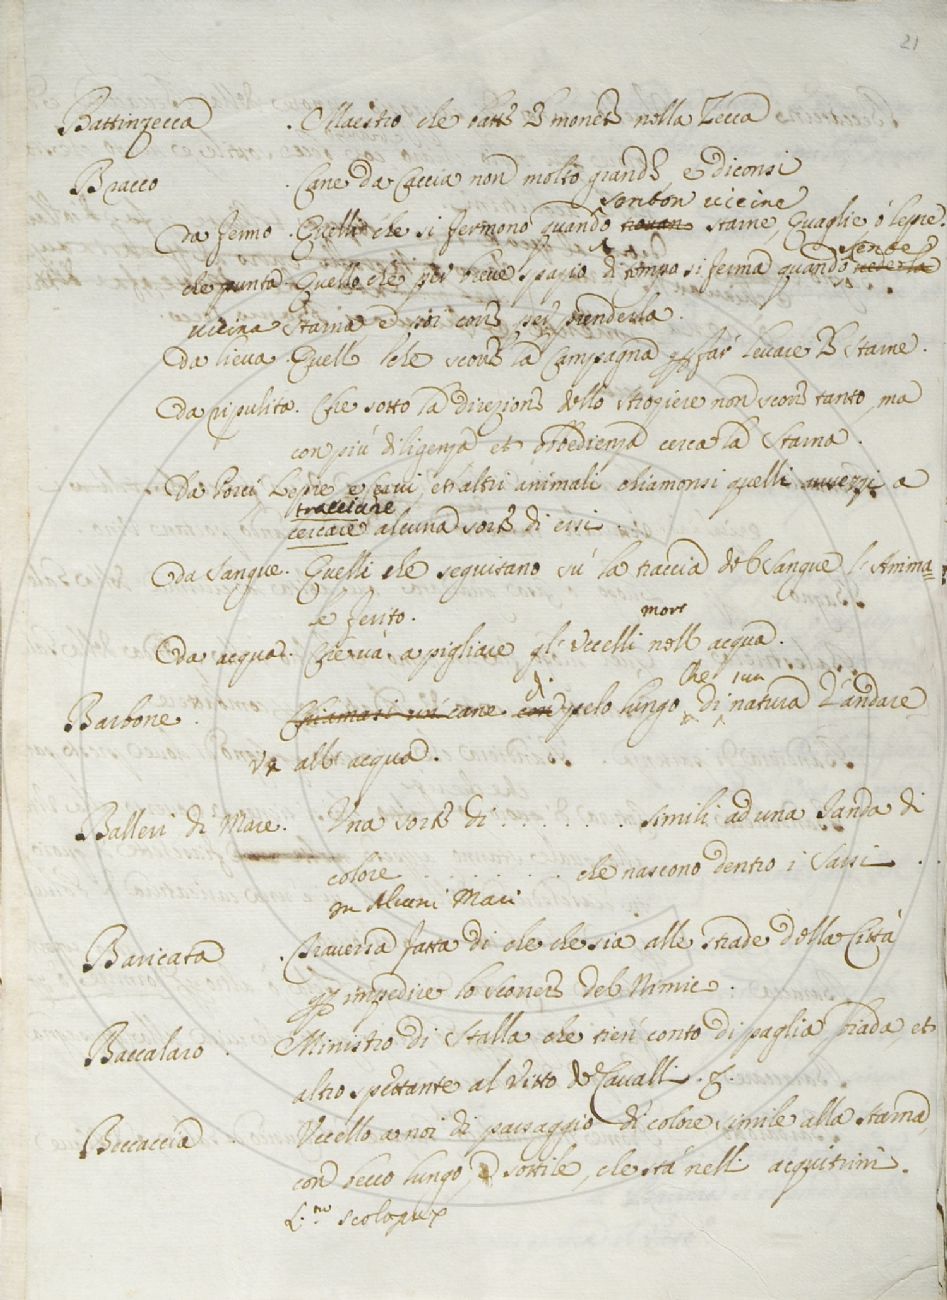 21
Battinzecca . Maestro che batte le monete nella Zecca
Bracco . Cane da Caccia non molto grande e diconsi
senton vicine
da fermo . Quelli che si fermono quando trovan starne, Quaglie ò lepre.
sente
che punta Quello che per breve spazio di tempo si ferma quando vede la
vicina starna e poi corre per prenderla.
da lieva . Quell che scorre la Campagna per far levare le starne.
da ripulita. Che sotto la direzione dello strogiere non scorre tanto, ma
con più diligenza et obbedienza cerca la starna.
da Porci, Lepre e cervi, et altri animali chiamonsi quelli avvezzi a
tracciare
cercare alcuna sorte di essi
da sangue. Quelli che seguitano sù la traccia del sangue l'Anima=
le ferito.
morti
da acqua. Che và a pigliare gl'Uccelli nell acqua.
di Che
Barbone . Chiamasi un cane con pelo lungo di natura d'andare
Va all' acqua.
Balleri di Mare. Una sorte di . . . . . . simili ad una Panda di
colore . . . . . . che nascono dentro i Sassi . .
in Alcuni Mari
Baricata . Traversa fatta di che che sia alle strade della Città
per impedire lo scorrere del Nimic.
Baccalaro . Ministro di Stalla che tien conto di paglia, biada, et
altro spettante al Vitto de Cavalli. &.
Beccaccia Uccello a noi di passaggio di colore simile alla starna,
con becco lungo, e sottile, che stà nelli acquitrini.
L.no scolopax